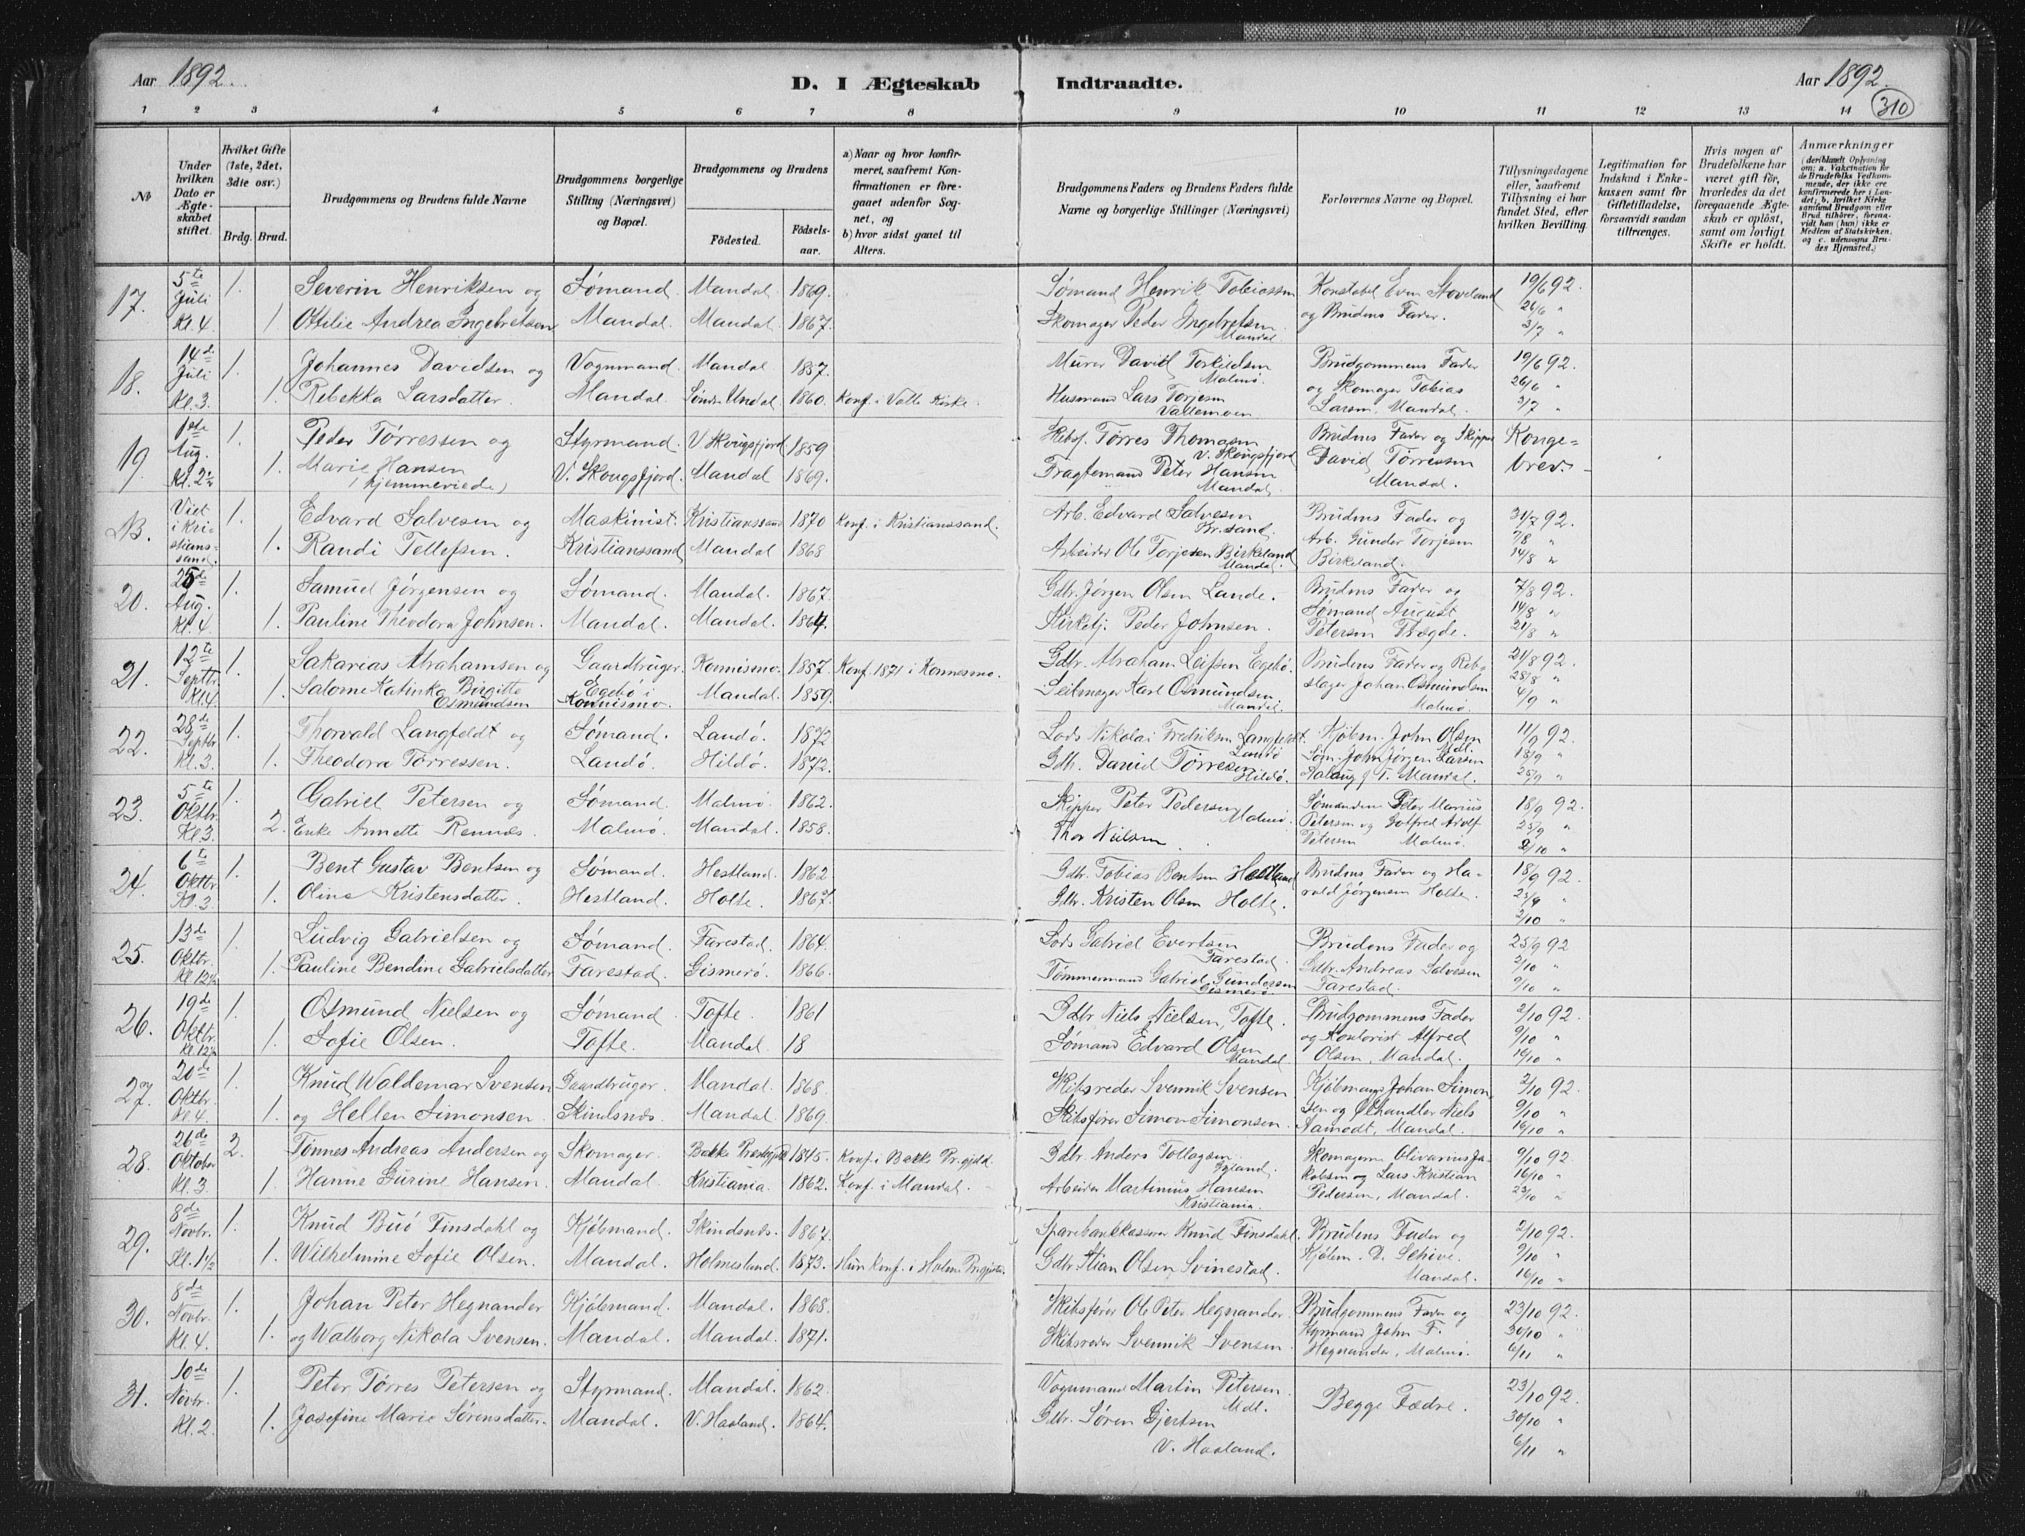 Aar 1892.
D. I Ægteskab Indtraadte.
Aar 1892.
310
1 2 3 4 5 6 7 8 9 10 11 12 13 14
№
Under hvilken Dato er Ægteskabet stiftet.
Hvilket Gifte (1ste, 2det, 3die osv.)
Brdg. Brud.
Brudgommens og Brudens fulde Navne
Brudgommens borgerlige Stilling (Næringsvei) og Bopæl.
Brudgommens og Brudens
Födested.
Födselsaar.
a) Naar og hvor konfirmeret, saafremt Konfirmationen er foregaaet udenfor Sognet, og
b) hvor sidst gaaet til Alters.
Brudgommens Faders og Brudens Faders fulde Navne og borgerlige Stillinger (Næringsvei)
Forlovernes Navne og Bopæl.
Tillysningsdagene eller, saafremt Tillysning ei har fundet Sted, efter hvilken Bevilling.
Legitimation for Indskud i Enkekassen samt for Giftetilladelse, forsaavidt saadan tiltrænges.
Hvis nogen af Brudefolkene har været gift för, hvorledes da det foregaaende Ægteskab er oplöst, samt om lovligt Skifte er holdt.
Anmærkninger
(deriblandt Oplysning om: a. Vaksination for de Brudefolks Vedkommende, der ikke ere konfirmerede her i Landet; b. hvilket Kirkesamfund Brudgom eller Brud tilhörer, forsaavidt han (hun) ikke er Medlem af Statskirken, og c. udensogns Brudes Hjemsted.)
17. 5te Juli Kl. 4. 1. Severin Henriksen og Sømand. Mandal. 1869. Sømand Henrik Tobiassen Konstabel Even Stoveland 19/6 92.
1 Ottilie Andrea Ingebretsen Mandal. Mandal. 1867. Skomager Peder Ingebretsen. Mandal og Brudens Fader. 26/6 " 3/7 "
18. 14de Juli Kl. 3. 1. Johannes Davidsen og Vognmand. Mandal 1857. Murer David Torkildsen Malmø. Brudgommens Fader 19/6 92.
1. Rebekka Larsdatter. Mandal. Söndr Undal. 1860. Konf. i Valle Kirke. Husmand Lars Torjesen Vallemoen og Skomager Tobias Larsen, Mandal. 26/6 " 3/7 "
19. 1ste Aug. Kl. 2½ 1. Peder Tørressen og Styrmand. V. Skougsfjord 1859 Skibsf. Tørres Thomasen V. Skougsfjord Brudens Fader og Skipper Kongebrev
1. Marie Hansen (hjemmeviede) V. Skougsfjord. Mandal. 1869. Fragtemand Peter Hansen Mandal. David Tørressen Mandal.
B. Viet i Kristianssand. 1. Edvard Salvesen og Maskinist. Kristianssand 1870 Konf. i Kristianssand. Arb. Edvard Salvesen Kr.sand. Brudens Fader og 31/7 92.
1. Randi Tellefsen. Kristianssand Mandal 1868 Arbeider Ole Torjesen Birkeland Mandal. Arb. Gunder Torjesen Birkeland. 7/8 " 14/8 "
20. 25de Aug. Kl. 4 1. Samuel Jørgensen og Sømand. Mandal. 1867. Gdbr. Jørgen Olsen Lande. Brudens Fader og 7/8 92.
1. Pauline Theodora Johnsen. Mandal. Mandal. 1864. Kirketj. Peder Johnsen. Sømand August Petersen Tregde. 14/8 " 21/8 "
21. 12te Septbr. Kl. 4 1. Sakarias Abrahamsen og Gaardbruger. Konnismo. 1857. Konf. 1871 i Konnesmo. Gdbr. Abraham Leifsen Egebø. Brudens Fader og Reb- 21/8 92.
1. Salome Katinka Birgitte Osmundsen Egebø i Konnismo. Mandal. 1859. Seilmager Karl Osmundsen Mandal. slager Johan Osmundsen Malmø. 28/8 " 4/9 "
22. 28de Septbr Kl. 3. 1. Thorvald Langfeldt og Sømand. Landø. 1872 Lods Nikolai Fredriksen Langfeldt. Landø Kjøbm. John Olsen Mdl. 11/9 92.
1. Theodora Tørressen. Landø. Hildø. 1872. Gdbr. David Tørresen Hildø. John Jørgen Larsen Mandal. 18/9 " 25/9 "
23. 5te Oktbr. Kl. 3. 1. Gabriel Petersen og Sømand. Malmø. 1862. Skipper Peter Pedersen Malmø. Sømændene Peter Marius 18/9 92.
2. Enke Annette Rennæs. Malmø. Mandal. 1858. Thor Nielsen. Petersen og Gotfred Adolf Petersen Malmø. 25/9 " 2/10 "
24. 6te Oktbr. Kl. 3 1. Bent Gustav Bentsen og Sømand. Hestland. 1862 Gdbr. Tobias Bentsen Hestland Brudens Fader og Ha- 18/9 92.
1. Oline Kristensdatter. Hestland. Holte. 1867. Gdbr. Kristen Olsen Holte. rald Jørgensen Holte. 25/9 " 2/10 "
25. 13de Oktbr. Kl. 12½ 1. Ludvig Gabrielsen og Sømand. Farestad. 1864. Lods Gabriel Evertsen Farestad. Brudens Fader og 25/9 92
1. Pauline Bendine Gabrielsdatter Farestad. Gismerø. 1866. Tømmermand Gabriel Gundersen Gismerø. Gdbr. Andreas Salvesen Farestad. 2/10 " 9/10 "
26. 19de Oktbr. Kl. 12½ 1. Osmund Nielsen og Sømand. Tofte. 1861 Gdbr Niels Nielsen, Tofte. Brudgommens Fader 2/10 92.
1. Sofie Olsen. Tofte. Mandal. 18 Sømand Edvard Olsen Mandal. og Kontorist Alfred Olsen, Mandal. 9/10 " 16/10 "
27. 20de Oktbr. Kl. 4. 1. Knud Waldemar Svensen Gaardbruger. Mandal. 1868. Skibsreder Svennik Svensen Kjøbmand Johan Simon- 2/10 92.
1. og Hellen Simonsen. Skinsnes. Mandal. 1869. Skibsfører Simon Simonsen. sen og Ølhandler Niels Aamodt, Mandal. 9/10 " 16/10 "
28. 26de Oktober Kl. 3 2. Tønnes Andreas Andersen og Skomager. Bakke Præstegjæld 1845. Konf. i Bakke Pr.gjeld. Gdbr Anders Tollagsen Skomagerne Olivarius Ja- 9/10 92
1. Hanne Gurine Hansen. Mandal. Kristiania. 1862. Konf. i Mandal. Arbeider Martinius Hansen Kristiania. kobsen og Lars Kristian Pedersen, Mandal. 16/10 " 23/10 "
29. 8de Novbr. Kl. 1½ 1. Knud Buø Finsdahl og Kjøbmand. Skindsnes. 1867. Sparebankkasserer Knud Finsdahl. Brudens Fader og 2/10 92
1. Wilhelmine Sofie Olsen. Mandal. Holmesland. 1873. Hun konf. i Holum Pr.gjeld. Gdbr Stian Olsen Svinestad. Kjøbm. D. Schive. Mandal. 9/10 " 16/10 "
30. 8de Novbr. Kl. 4. 1. Johan Peter Hegnander Kjøbmand. Mandal. 1868. Skibsfører Ole Peter Hegnander Brudgommens Fader og 23/10 92.
1. og Walborg Nikola Svensen. Mandal. Mandal. 1871. Skibsreder Svennik Svensen. Styrmand John F. Hegnander, Malmø. 30/10 " 6/11 "
31. 10de Novbr. Kl. 2. 1. Peter Tørres Petersen og Styrmand. Mandal. 1862. Vognmand Martin Petersen Mdl. Begge Fædre. 23/10 92.
1. Josefine Marie Sørensdatter. Mandal. V. Haaland. 1864. Gdbr. Søren Gjertsen V. Haaland. 30/10 " 6/11 "